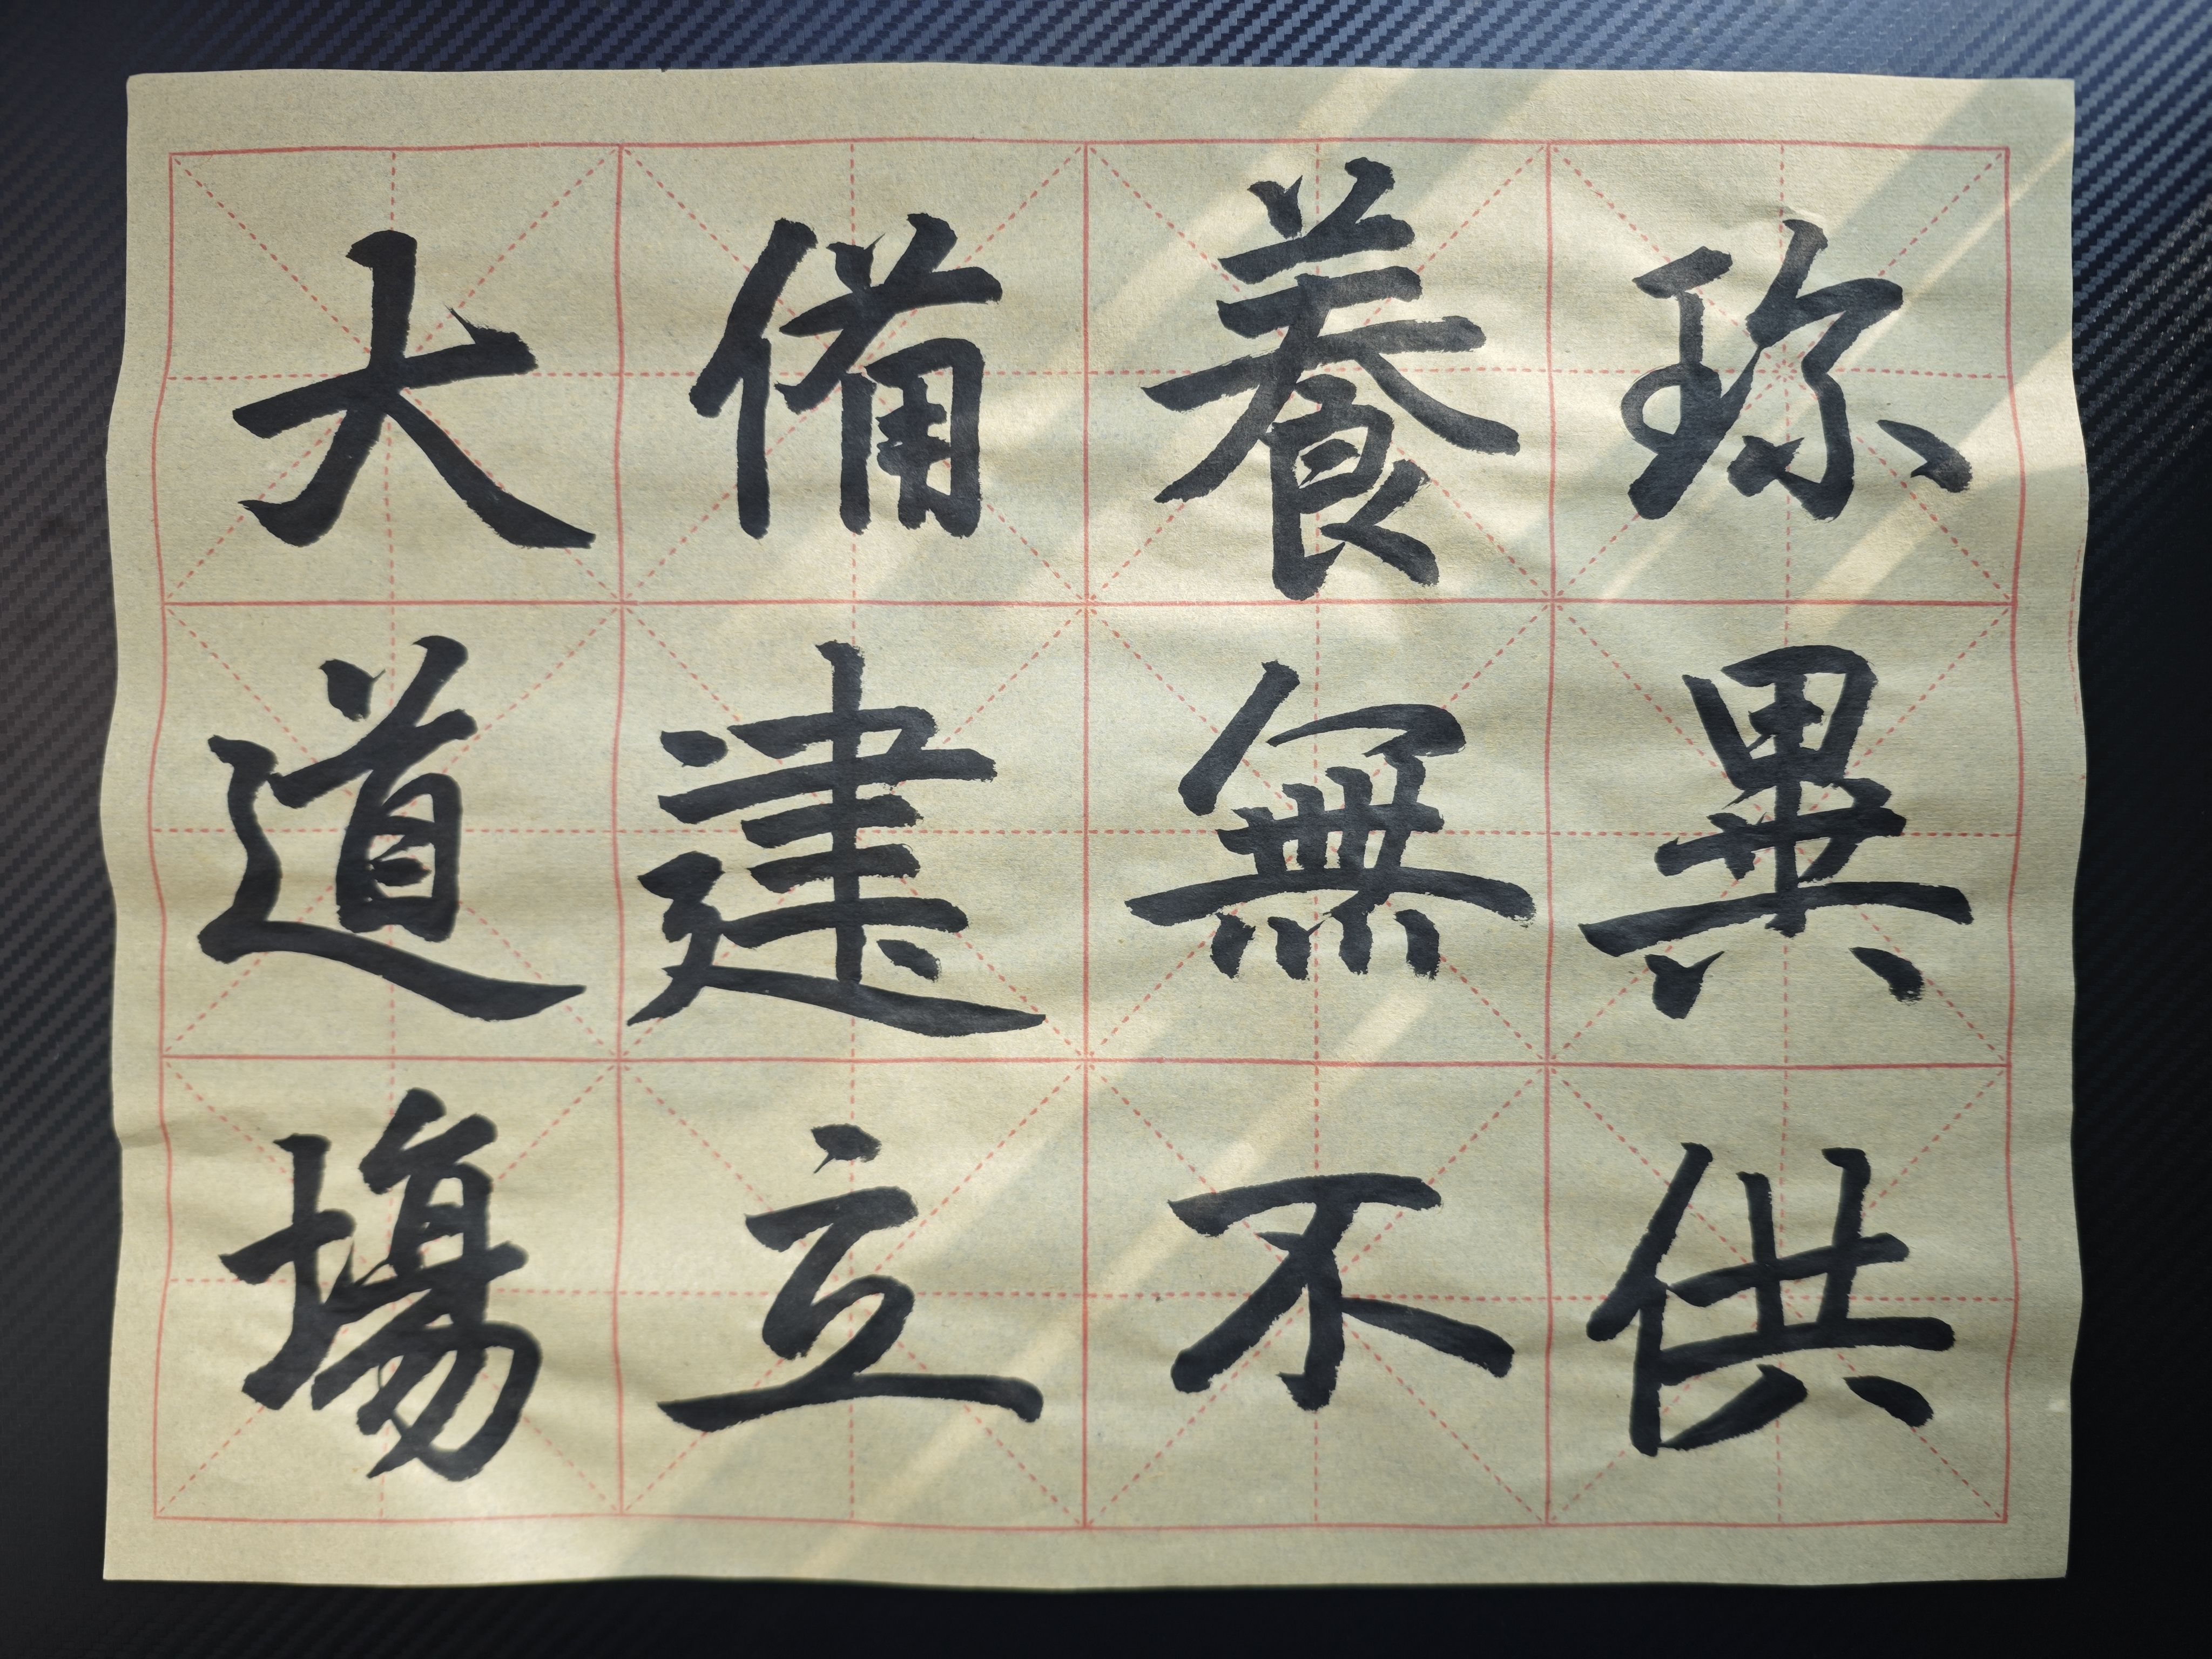 珎異供
養無不
備建立
大道塲